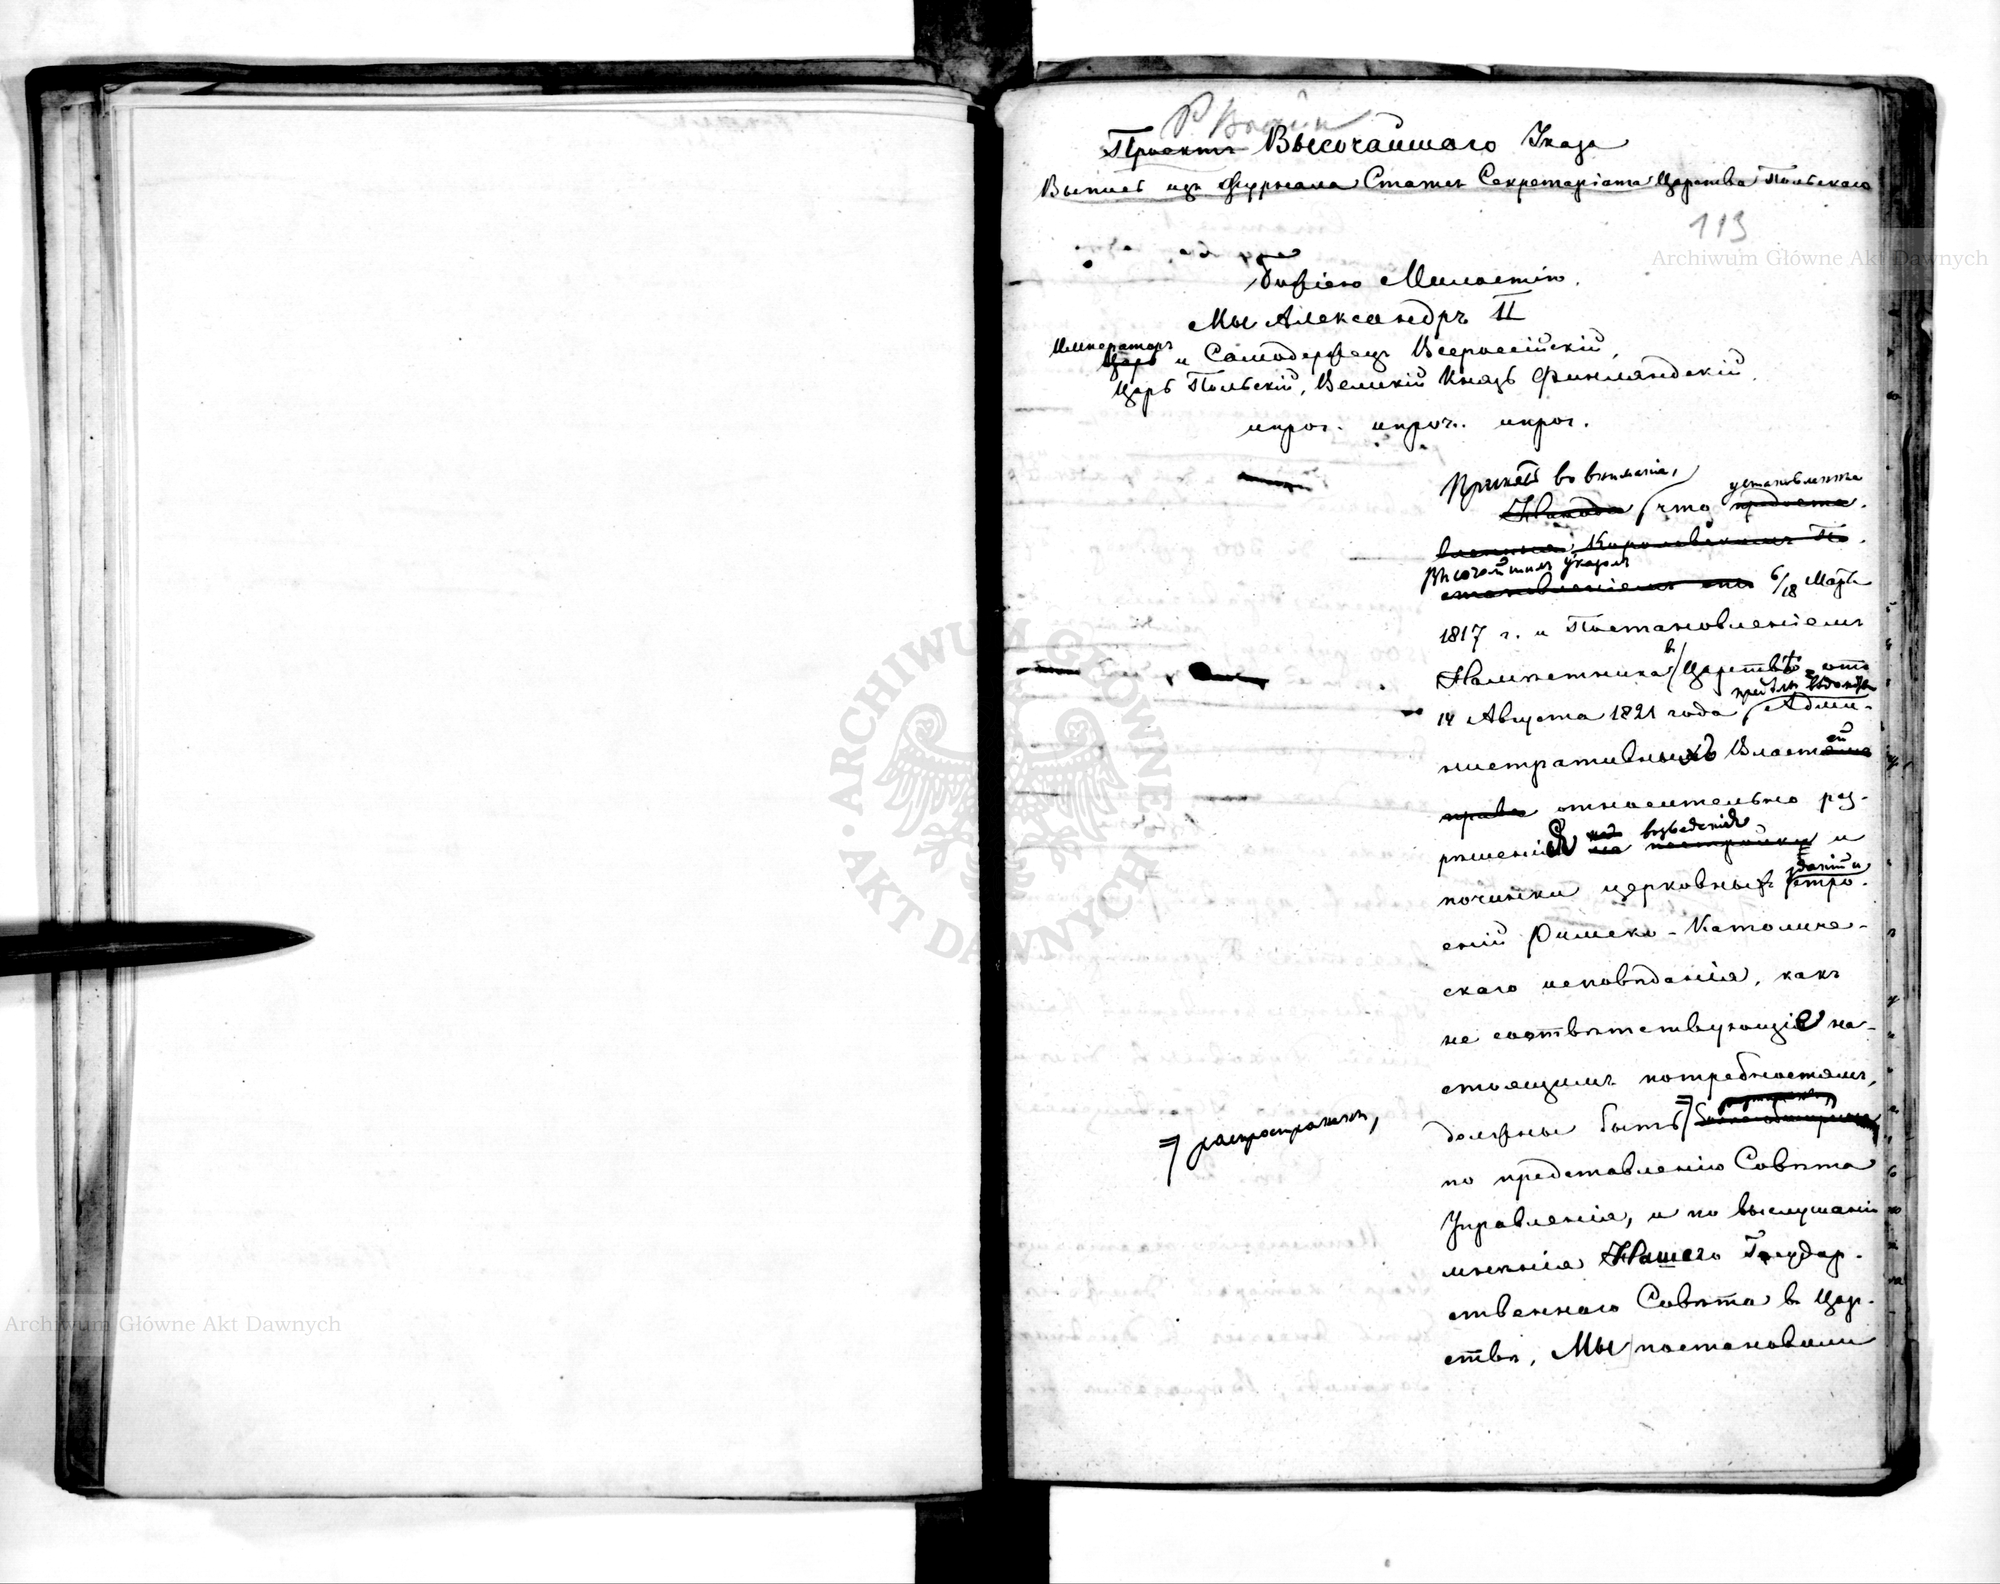 Проектъ Высочайшаго Указа
Выпись изъ Журнала Статсъ Секретаріата Царства Польскаго
113
Archiwum Główne Akt Dawnych
Божіею Милостію.
Мы Александръ II
Императоръ
Царь и Самодержецъ Всероссійскій,
Царь Польскій, Великій Князь Финляндскій
ипроч. ипроч. ипроч.
Принявъ во вниманіе,
Находя что установленные предоста-
вленныя Королевскимъ По-
Высочайшимъ указомъ
становленіемъ отъ 6/18 Марта
1817 г. и Постановленіемъ
Намѣстника въ Царствѣ отъ
предѣлы
14 Августа 1821 года Адми-
нистративныхъ Властей
права относительно раз-
рѣшенія возведенія
на постройки и
починки церковныхъ зданій и стро-
еній Римско-Католиче-
скаго исповѣданія, какъ
не соотвѣтствующіе на-
стоящимъ потребностямъ,
должны быть
распространены,
по представленію Совѣта
Управленія, и по выслушаніи
мнѣнія Нашего Государ-
ственнаго Совѣта въ Цар-
ствѣ, Мы постановили
ARCHIWUM GŁÓWNE AKT DAWNYCH
Archiwum Główne Akt Dawnych